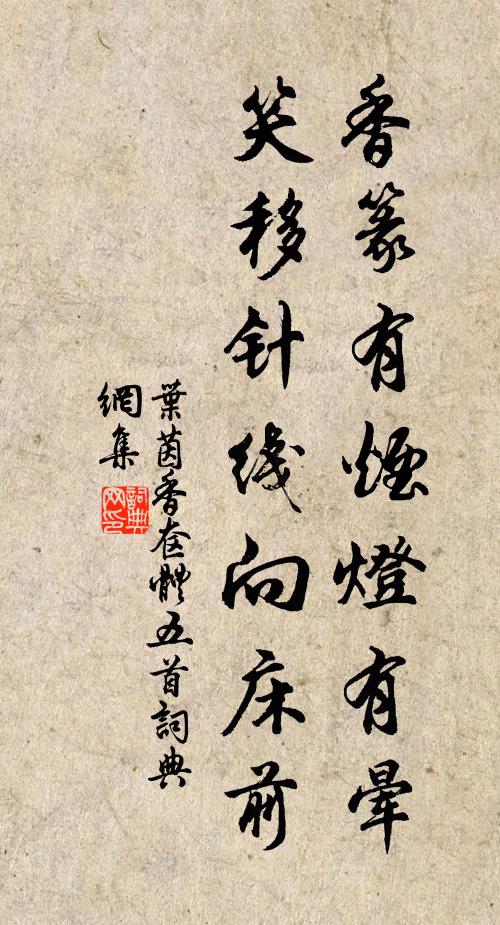 香篆有煙燈有暈
笑移针线向床前
葉茵香奩體五首詞典
網集
詞典
网印